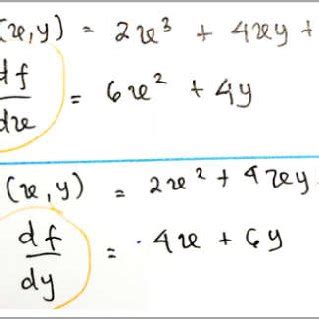 (x,y) = 2x³ + 4xy +
df/dx = 6x² + 4y
(x,y) = 2x² + 4xy
df/dy = 4x + 6y